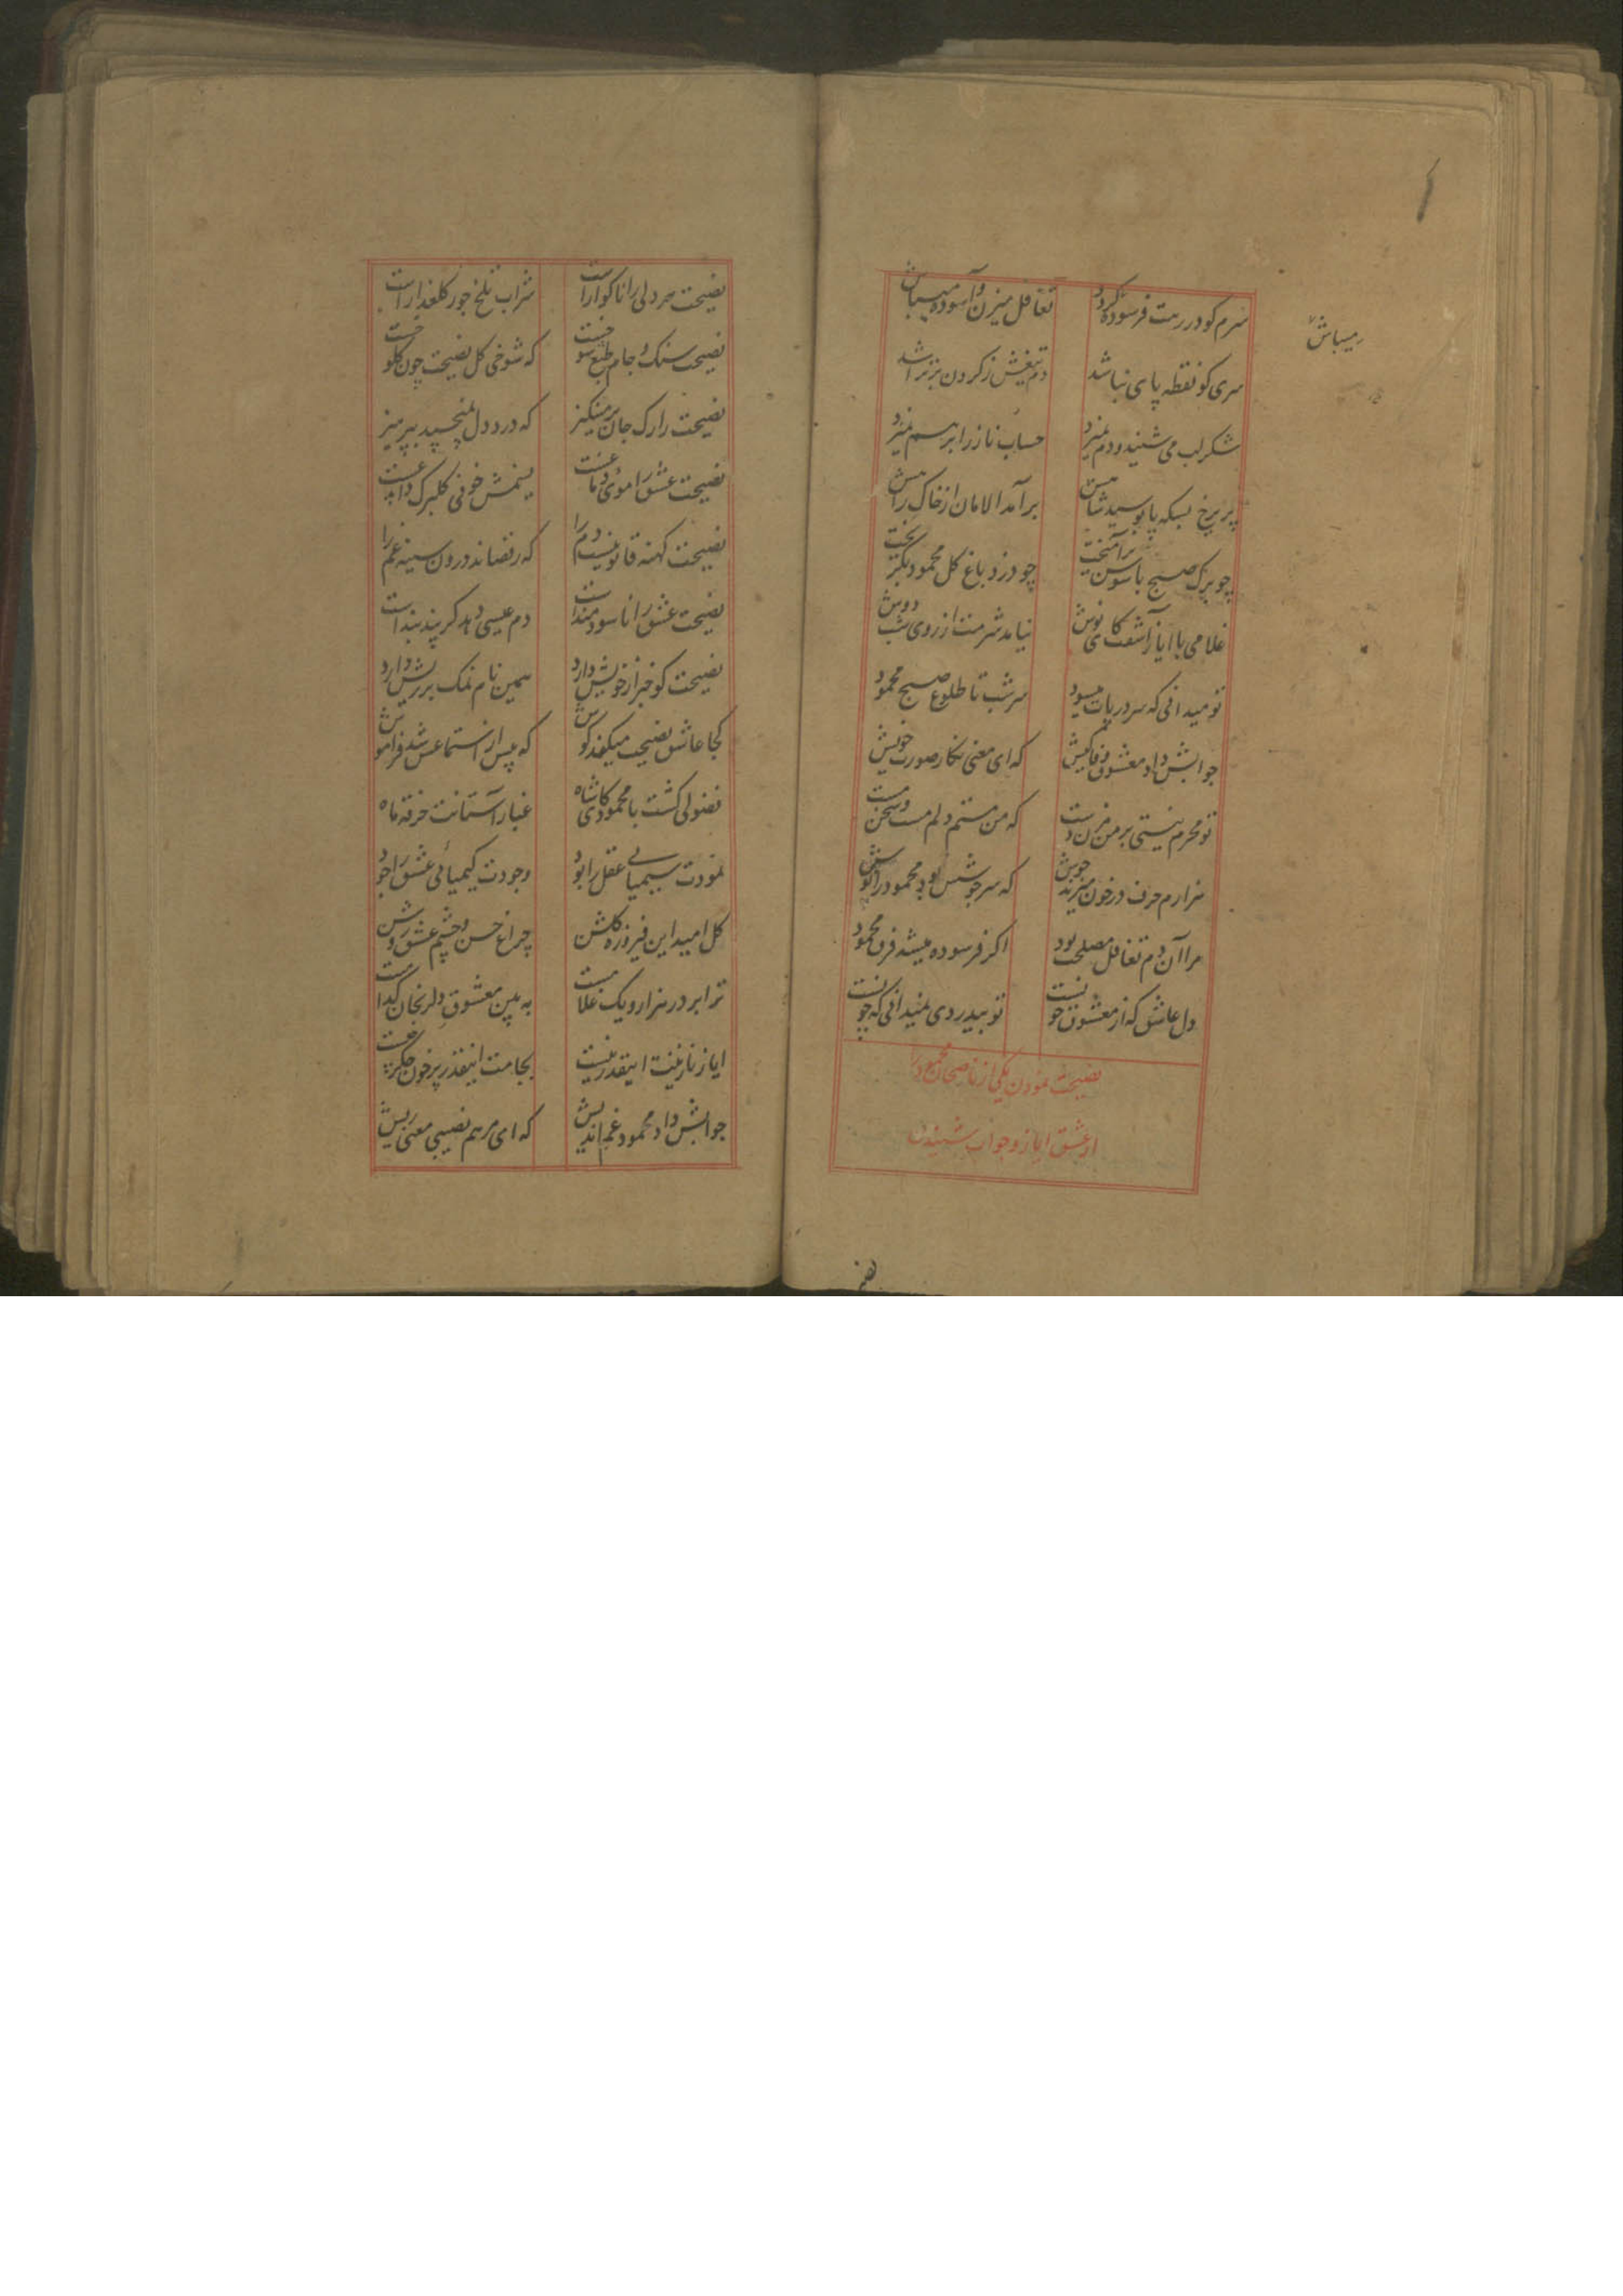 سرم کو در رهت فرسوده گردد تغافل میزن و آسوده میباش
میباش
سری کو نقطه پای نباشد دم تیغش ز کردن بر تراشد
شکر لب می شنید و دم نمیزد حساب ناز را بر هم نمیزد
پریرخ بسکه پا بوسید شاهش بر آمد الامان از خاک راهش
چو برک صبح با سوسن بر آمیخت چو دزد باغ کل محمود بگریخت
غلامی با ایاز آشفت کای نوش نیامد شرمت از روی شب دوش
تو میدانی که سر در پات میسود سر شب تا طلوع صبح محمود
جوابش داد معشوق وفا کیش که ای معنی نکار صورت خویش
تو محرم نیستی بر من مزن دست که من مستم دلم مست و سخن مست
ندارم حرف در خون میزند جوش که سر جوشش بود محمود را نوش
مرا آن دم تغافل مصلحت بود اکر فرسوده میشد فرق محمود
دل عاشق که از معشوق خونست تو بیدردی نمیدانی که چونست
نصیحت نمودن یکی از ناصحان محمود را
از عشق ایاز و جواب شنیدن
نصیحت مرد لی را ناکوار است شراب تلخ جور کلعذار است
نصیحت سنک و جام طبع سو که شوخی کل نصیحت چون کلو
نصیحت را رک جان بر مینکیز که درد دل نمیچسپد بپرهیز
نصیحت عشق را موی دماغست نسیمش خونی کلبرک داغست
نصیحت کهنه قانونیست دم را که رقصاند درون سینه غم را
نصیحت عشق را نا سودمند است دم عیسی دهد کر پند بند است
نصیحت کو خبر از خویش دارد همین نام نمک بر ریش دارد
کجا عاشق نصیحت میکند کوش که پیش از استماعش شد فراموش
فضولی کشت با محمود کای شاه غبار آستانت خرقه ماه
نمودت سیمیای عقل را بود وجودت کیمیائی عشق را جود
کل امید این فیروزه کلشن چراغ حسن و چشم عشق روشن
ترا بر در هزار و یک غلامست به بین معشوق دلرنجان کدامست
ایاز نازنینت اینقدر نیست بجامت اینقدر پر خون جکر چیست
جوابش داد محمود غم اندیش که ای مرهم نصیبی معنی ریش
نصیحت